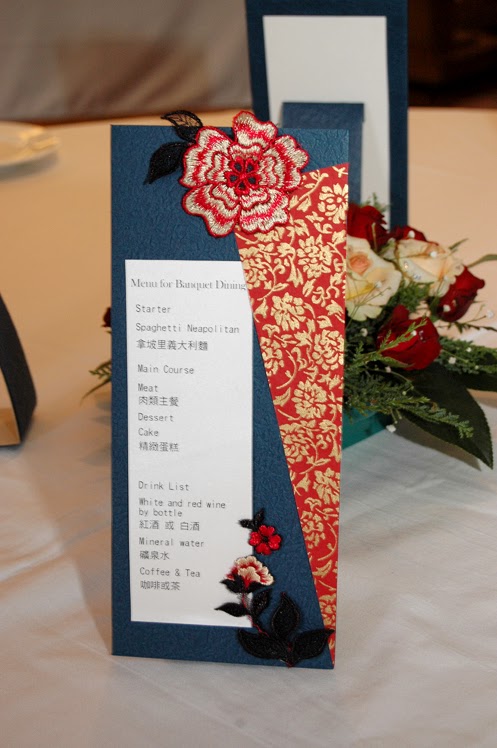 Menu for Banquet Dining
Starter
Spaghetti Neapolitan
拿坡里義大利麵
Main Course
Meat
肉類主餐
Dessert
Cake
精緻蛋糕
Drink List
White and red wine
by bottle
紅酒 或 白酒
Mineral water
礦泉水
Coffee & Tea
咖啡或茶